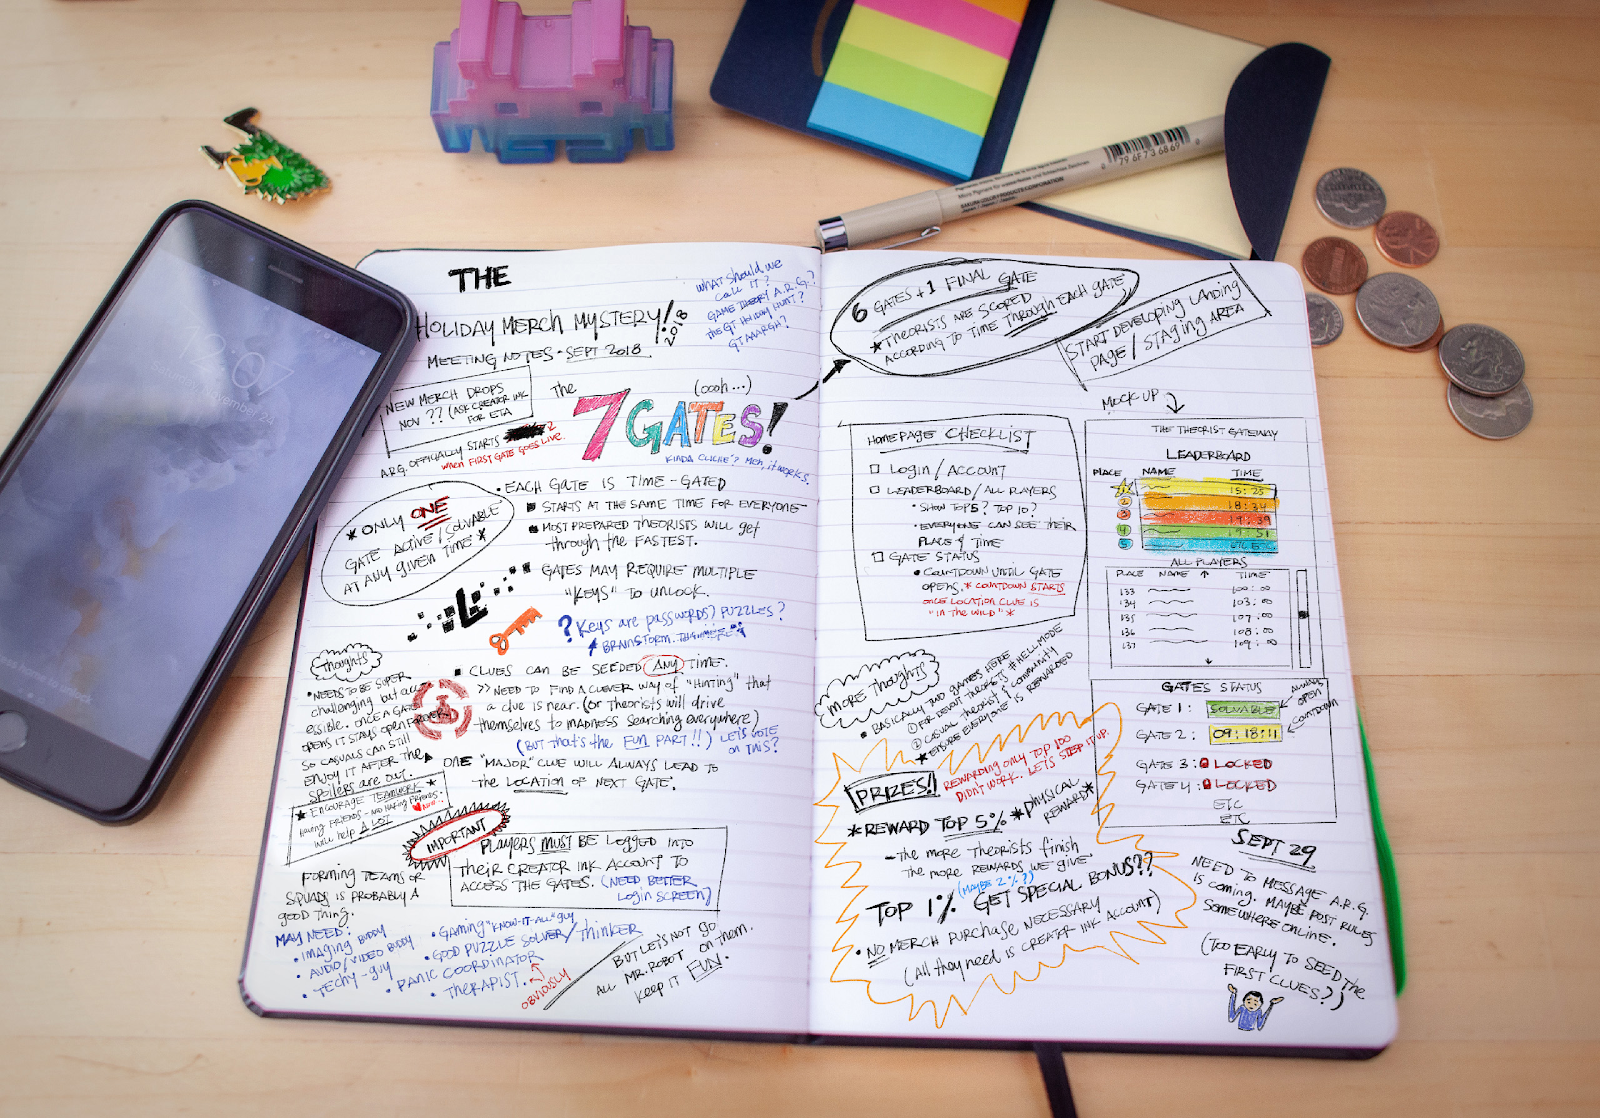 THE
HOLIDAY MERCH MYSTERY! 2018
MEETING NOTES · SEPT 2018
WHAT SHOULD WE
CALL IT?
GAME THEORY A.R.G.?
THE GT HOLIDAY HUNT?
GT AAARGH?
NEW MERCH DROPS
NOV ?? (ASK CREATOR INK
FOR ETA
A.R.G. OFFICIALLY STARTS
WHEN FIRST GATE GOES LIVE.
The
(oooh...)
7 GATES!
KINDA CLICHE? Meh, it works.
* ONLY ONE
GATE ACTIVE/SOLVABLE
AT ANY GIVEN TIME *
• EACH GATE IS TIME-GATED
■ STARTS AT THE SAME TIME FOR EVERYONE
■ MOST PREPARED THEORISTS WILL get
through the FASTEST.
GATES MAY REQUIRE MULTIPLE
"KEYS" TO UNLOCK.
? Keys are passwords? PUZZLES?
BRAINSTORM.
Thoughts
• NEEDS TO BE SUPER
challenging but acc
essible. ONCE A GATE
OPENS IT STAYS OPEN
SO CASUALS CAN STILL
ENJOY IT AFTER THE
SPOILERS ARE OUT.
■ CLUES CAN BE SEEDED ANY TIME.
>> NEED TO FIND A CLEVER WAY OF "HINTING" that
a clue is near. (or Theorists will drive
themselves to MADNESS SEARCHING everywhere)
(BUT that's the FUN PART!!) LET'S VOTE
ON THIS?
▲ ONE "MAJOR" CLUE WILL ALWAYS LEAD TO
the LOCATION OF NEXT GATE.
★ ENCOURAGE TEAMWORK
Having FRIENDS
will help A LOT
IMPORTANT
PLAYERS MUST BE LOGGED INTO
THEIR CREATOR INK ACCOUNT TO
ACCESS THE GATES. (NEED BETTER
LOGIN SCREEN)
FORMING TEAMS OR
SQUADS IS PROBABLY A
GOOD THING.
MAY NEED:
• IMAGING BUDDY
• AUDIO/VIDEO BUDDY
• TECHY-GUY
• Gaming "KNOW-IT-ALL" guy
• GOOD PUZZLE SOLVER/THINKER
• PANIC COORDINATOR
• THERAPIST.
OBVIOUSLY
BUT LET'S NOT GO
ALL MR. ROBOT ON THEM.
KEEP IT FUN.
6 GATES + 1 FINAL GATE
* THEORISTS ARE SCORED
ACCORDING TO TIME THROUGH EACH GATE
START DEVELOPING LANDING
PAGE / STAGING AREA
MOCK UP
HOMEPAGE CHECKLIST
□ LOGIN / ACCOUNT
□ LEADERBOARD/ALL PLAYERS
• SHOW TOP 5? TOP 10?
• EVERYONE CAN SEE THEIR
PLACE & TIME
□ GATE STATUS
• COUNTDOWN UNTIL GATE
OPENS. * COUNTDOWN STARTS
ONCE LOCATION CLUE IS
"IN THE WILD" *
THE THEORIST GATEWAY
LEADERBOARD
PLACE NAME TIME
1 15:25
2 18:34
3 19:39
4 19:51
5 ETC ETC
ALL PLAYERS
PLACE NAME ↑ TIME
133 100:00
134 103:00
135 107:00
136 108:00
137 109:00
GATES STATUS
GATE 1: SOLVABLE
ALWAYS OPEN
GATE 2: 09:18:11
COUNTDOWN
GATE 3: LOCKED
GATE 4: LOCKED
ETC
ETC
MORE THOUGHTS
• BASICALLY TWO GAMES HERE
① FOR DEVOUT THEORISTS #HELLMODE
② CASUAL THEORIST & COMMUNITY
★ ENSURE EVERYONE IS REWARDED
PRIZES!
REWARDING ONLY TOP 100
DIDN'T WORK. LET'S STEP IT UP.
* REWARD TOP 5% * PHYSICAL
REWARD *
- THE MORE THEORISTS FINISH
THE MORE REWARDS WE GIVE
(MAYBE 2%?)
TOP 1% GET SPECIAL BONUS??
• NO MERCH PURCHASE NECESSARY
(All they need is CREATOR INK ACCOUNT)
SEPT 29
NEED TO MESSAGE A.R.G.
IS COMING. MAYBE POST RULES
SOMEWHERE ONLINE.
(TOO EARLY TO SEED THE
FIRST CLUES?)
12:07